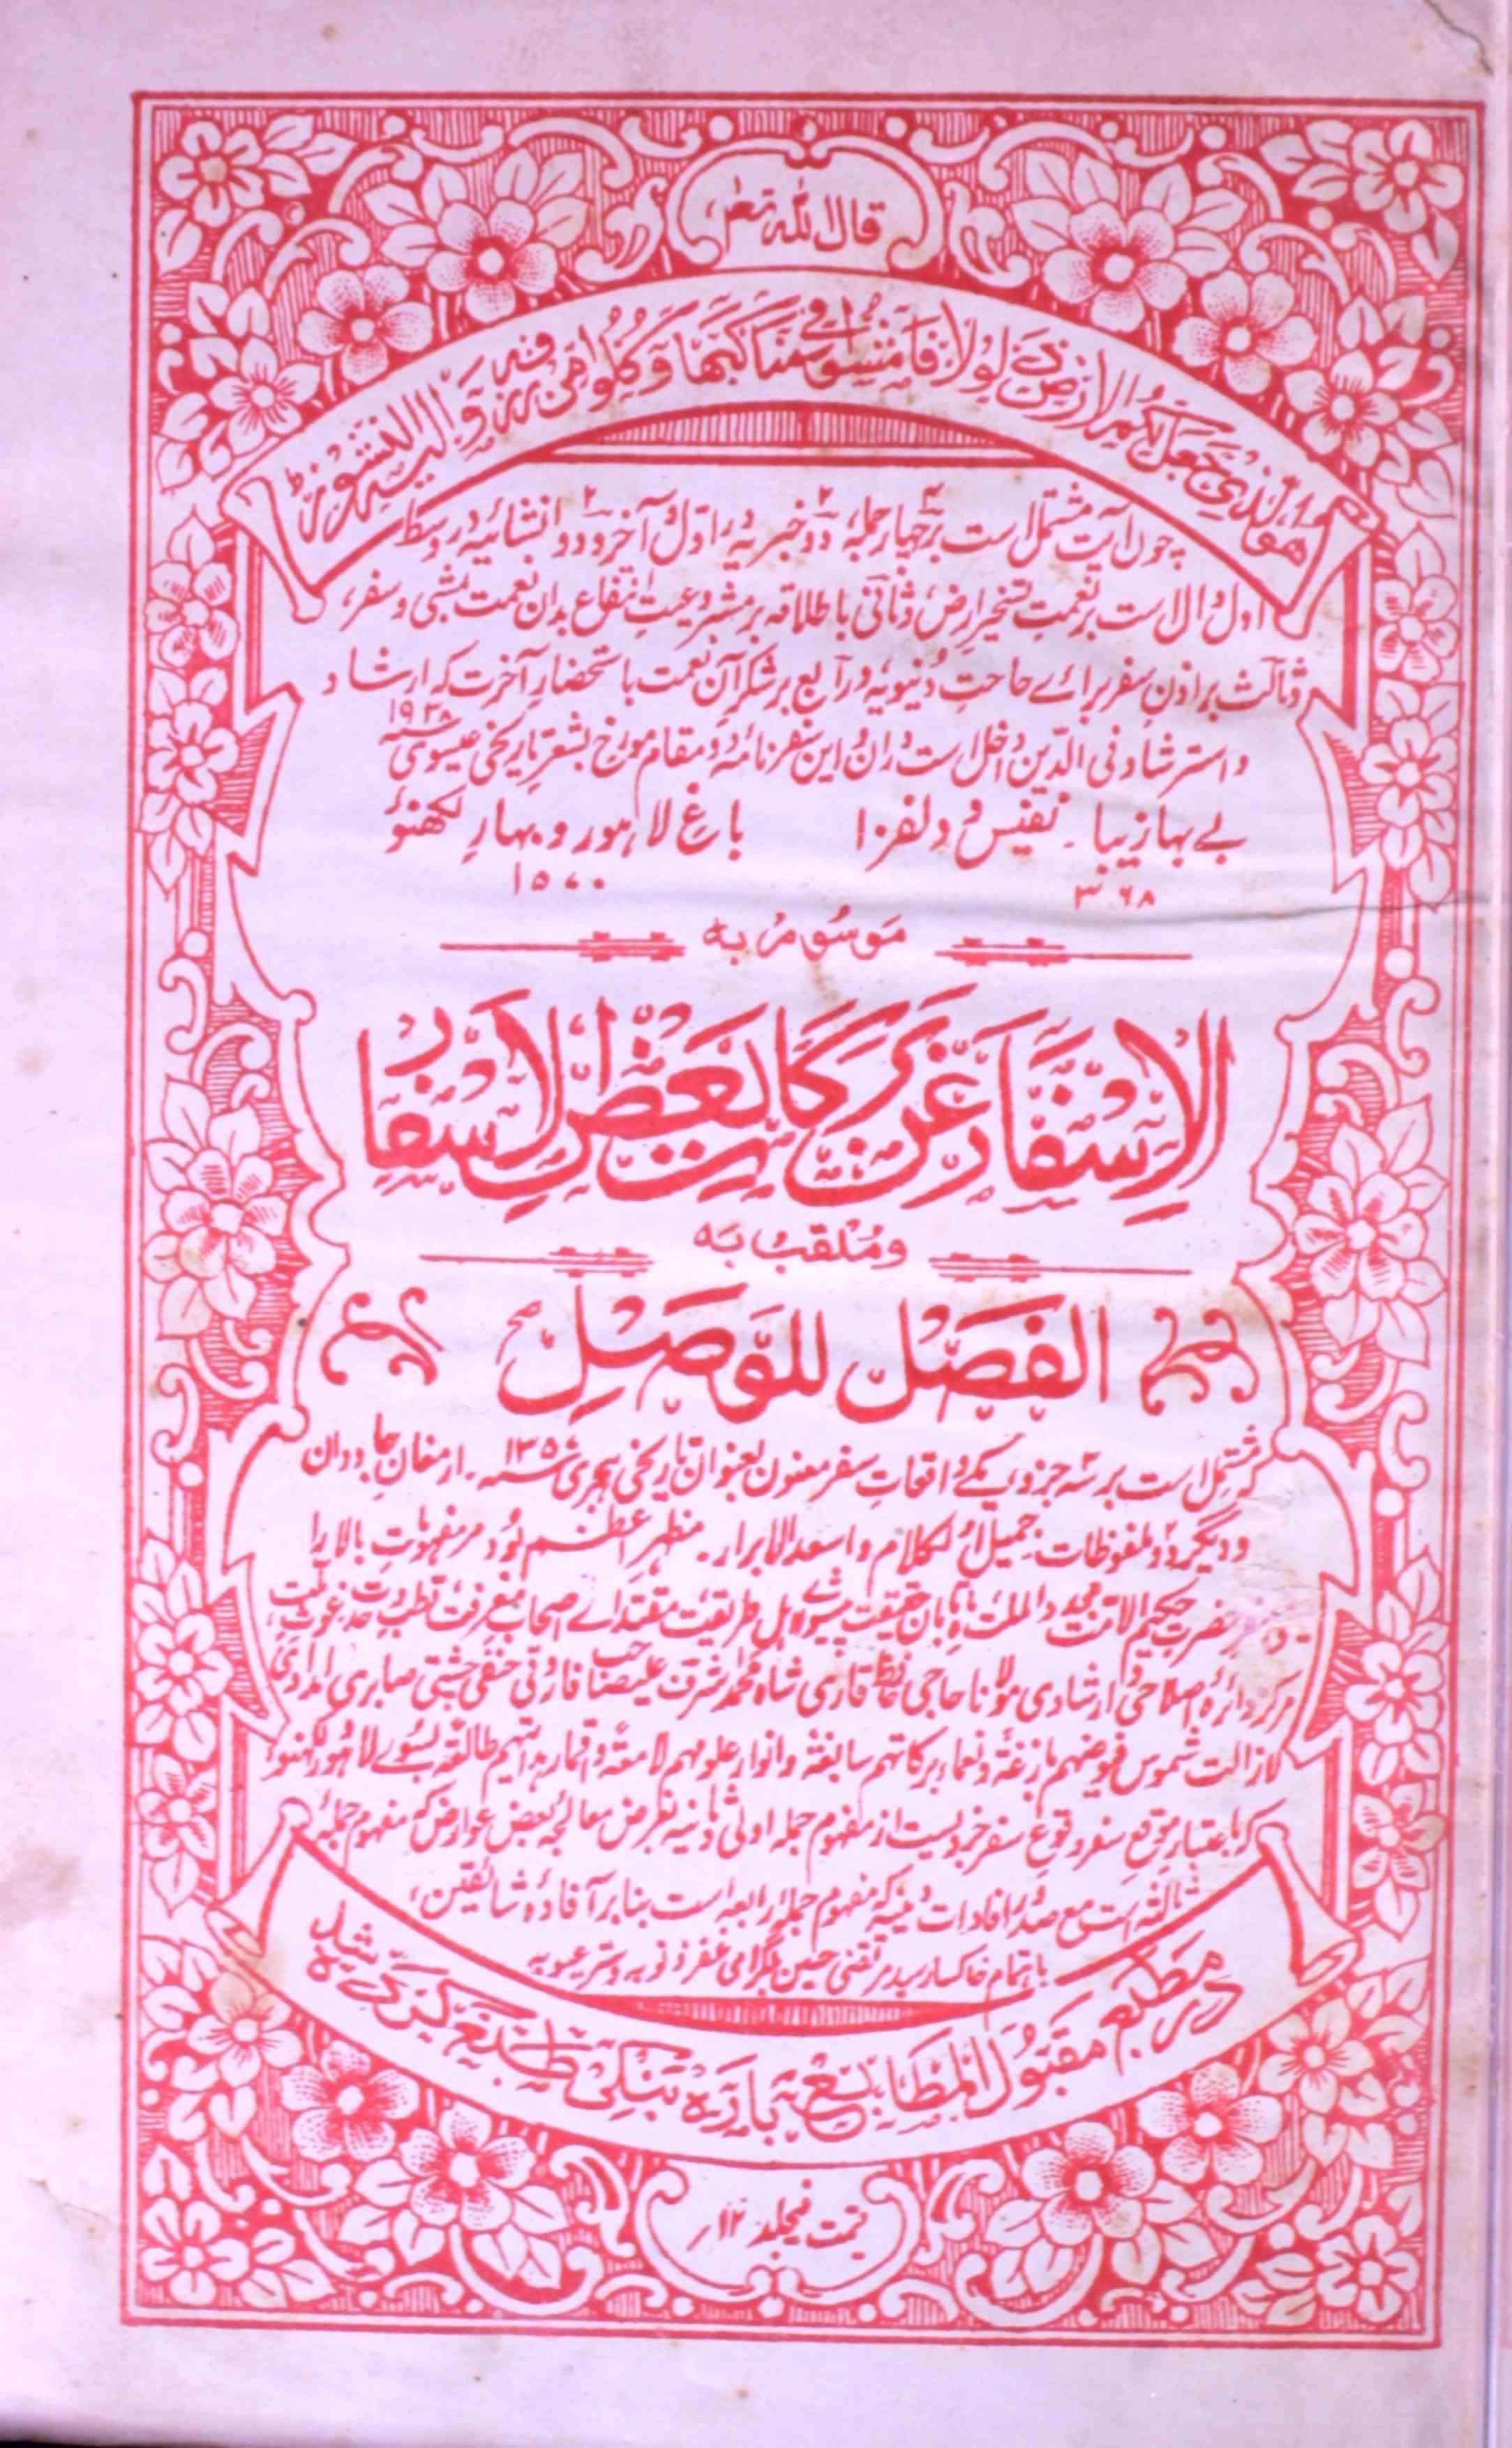 قال اللہ تعالیٰ
هُوَ الَّذِي جَعَلَ لَكُمُ الْأَرْضَ ذَلُولًا فَامْشُوا فِي مَنَاكِبِهَا وَكُلُوا مِنْ رِزْقِهِ وَإِلَيْهِ النُّشُورُ ط
چوں آیت مشتمل است برچہار جملہ، دو خبریہ در اول و آخر و دو انشائیہ در وسط
اول دال است بر نعمتِ تسخیرِ ارض، و ثانی باطلاقہ بر مشروعیتِ انتفاع بداں نعمت بمشی و سفر،
و ثالث بر اذنِ سفر برائے حاجتِ دنیویہ و رابع بر شکر آں نعمت باستحضارِ آخرت کہ ارشاد
و استرشاد فی الدین داخل است دراں و ایں سفرنامۂ دو مقام مورخ بشعر تاریخی عیسوی ۱۹۳۸ء
بے بہا زیبا۔ نفیس و دلفزا باغِ لاہور و بہارِ لکھنؤ
۳۶۸ ۱۵۷۰
مَوسُوم بہ
الاِسفَار عَن بَرَكَات بَعضِ الاَسفَار
و مُلقّب بہ
الفَصلُ لِلوَصلِ
کہ مشتمل است بر سہ جزو، یکے واقعاتِ سفر معنون بعنوان تاریخی ہجری ۱۳۵۷ھ۔ ارمغانِ جاوداں
و دیگر دو ملفوظات۔ جمیل الکلام و اسعد الابرار۔ مظہرِ اعظم بود مر مفہوماتِ بالا را
سفرِ حضرت حکیم الامت مجدد الملت پیشوائے اہل طریقت مقتدائے اصحابِ معرفت قطبِ وحدت غوثیت،
مرکز دائرہ اصلاحی و ارشادی مولانا حاجی حافظ قاری شاہ محمد اشرف علی صاحب فاروقی حنفی چشتی صابری امدادی
لازالت شموس فیوضہم بازغۃ و نعماء برکاتہم سابغۃ و انوار علومہم لامعۃ و اقمار ہدایتہم طالعۃ بسوئے لاہور و لکھنؤ،
کہ باعتبارِ موقع سفر و وقوعِ سفر خبریست از مفہوم جملہ اولیٰ و ثانیہ بغرض معالجہ بعض عوارض کہ مفہوم جملۂ
ثالثہ است مع صدور افادات دینیہ کہ مفہوم جملۂ رابعہ است بنا بر افادۂ شائقین،
باہتمام خاکسار سید مرتضیٰ حسین بلگرامی غفر ذنوبہ و ستر عیوبہ
در مطبع مقبول المطابع
قیمت فیجلد ۱۲؍